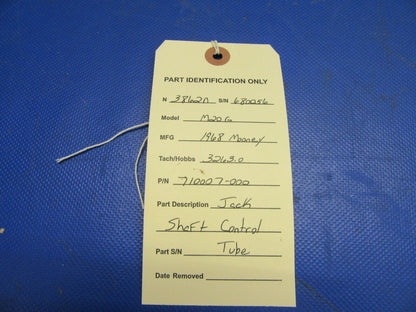 PART IDENTIFICATION ONLY
N 3862N S/N 680056
Model M20G
MFG 1968 Mooney
Tach/Hobbs 3263.0
P/N 710007-000
Part Description Jack
Shaft Control
Part S/N Tube
Date Removed